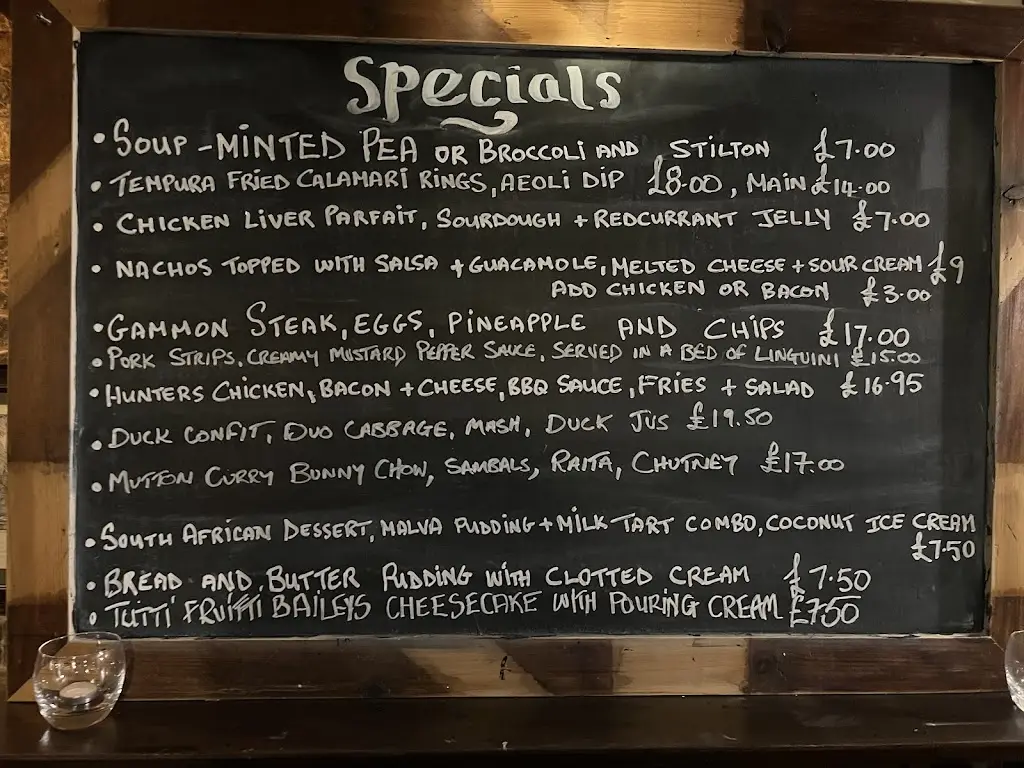 Specials
• SOUP - MINTED PEA OR BROCCOLI AND STILTON £7.00
• TEMPURA FRIED CALAMARI RINGS, AEOLI DIP £8.00, MAIN £14.00
• CHICKEN LIVER PARFAIT, SOURDOUGH + REDCURRANT JELLY £7.00
• NACHOS TOPPED WITH SALSA + GUACAMOLE, MELTED CHEESE + SOUR CREAM £9
ADD CHICKEN OR BACON £3.00
• GAMMON STEAK, EGGS, PINEAPPLE AND CHIPS £17.00
• PORK STRIPS, CREAMY MUSTARD PEPPER SAUCE, SERVED IN A BED OF LINGUINI £15.00
• HUNTERS CHICKEN, BACON + CHEESE, BBQ SAUCE, FRIES + SALAD £16.95
• DUCK CONFIT, DUO CABBAGE, MASH, DUCK JUS £19.50
• MUTTON CURRY BUNNY CHOW, SAMBALS, RAITA, CHUTNEY £17.00
• SOUTH AFRICAN DESSERT, MALVA PUDDING + MILK TART COMBO, COCONUT ICE CREAM
£7.50
• BREAD AND BUTTER PUDDING WITH CLOTTED CREAM £7.50
• TUTTI FRUITTI BAILEYS CHEESECAKE WITH POURING CREAM £7.50